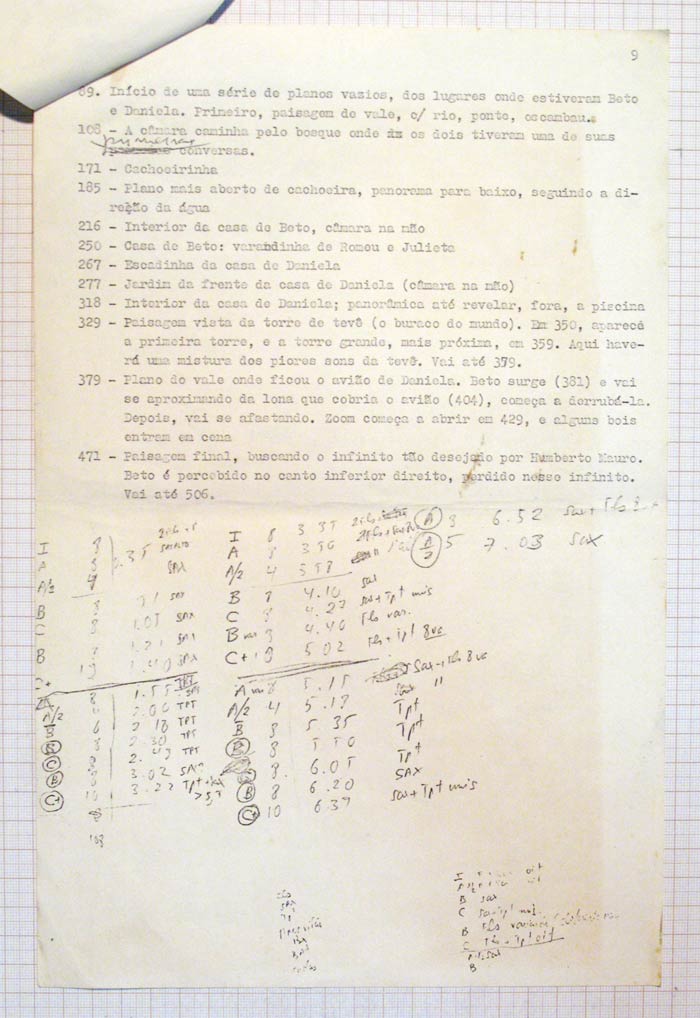 9
89. Início de uma série de planos vazios, dos lugares onde estiveram Beto
e Daniela. Primeiro, paisagem de vale, c/ rio, ponto, oscambau.
108 - A câmara caminha pelo bosque onde os dois tiveram uma de suas
primeiras conversas.
171 - Cachoeirinha
185 - Plano mais aberto de cachoeira, panorama para baixo, seguindo a di-
reção da água
216 - Interior da casa de Beto, câmara na mão
250 - Casa de Beto: varandinha de Romeu e Julieta
267 - Escadinha da casa de Daniela
277 - Jardim da frente da casa de Daniela (câmara na mão)
318 - Interior da casa de Daniela; panorâmica até revelar, fora, a piscina
329 - Paisagem vista da torre de tevê (o buraco do mundo). Em 350, aparece
a primeira torre, e a torre grande, mais próxima, em 359. Aqui have-
rá uma mistura dos piores sons da tevê. Vai até 379.
379 - Plano do vale onde ficou o avião de Daniela. Beto surge (381) e vai
se aproximando da lona que cobria o avião (404), começa a derrubá-la.
Depois, vai se afastando. Zoom começa a abrir em 429, e alguns bois
entram em cena
471 - Paisagem final, buscando o infinito tão desejado por Humberto Mauro.
Beto é percebido no canto inferior direito, perdido nesse infinito.
Vai até 506.
A 8 6.52 sax +
A/2 5 7.03 sax
I 8
A
A/2 4 SAX
B 8 SAX
C 8 1.07 SAX
B 1.21 SAX
C+ 1.40 SAX
8 1.55 TPT
A/2 2.06 TPT
B 6 2.18 TPT
8 2.30 TPT
C 2.43 TPT
B 8 3.02 SAX
C+ 10 3.22 TPT
108
I 8
A 8
A/2 4
B 8 4.10 sax
C 8 4.27 sax + Tpt unis
B var 8 4.40 Fls var.
C+ 5.02 Fls + Tpt 8va
A var 8 5.15 sax + Fls 8va
A/2 4 "
B 8 5.35 Tpt
8 5.50 Tpt
8. 6.05 Tpt
B 8 6.20 SAX
C+ 10 6.37 sax + Tpt unis
I
B sax
C sax + Tpt unis
B Fls
C Fls + Tpt
B